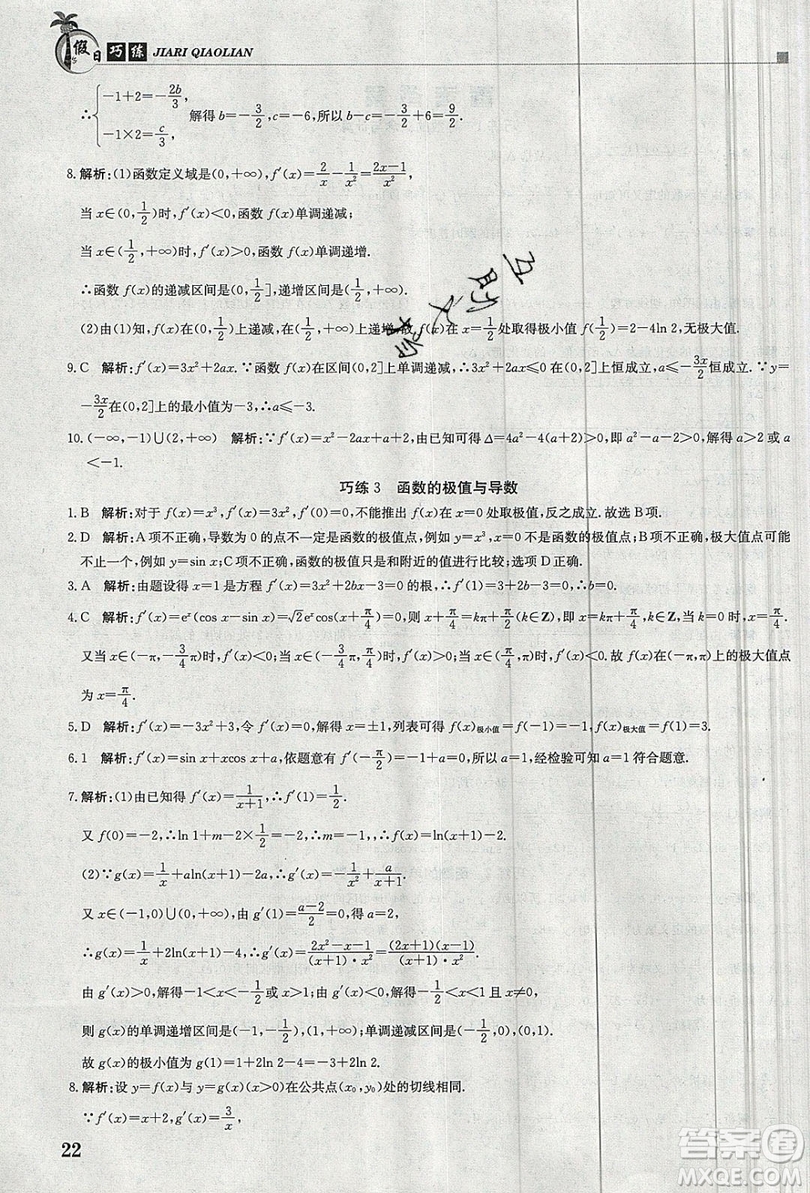 假日巧练 JIARI QIAOLIAN
∴{-1+2=-2b/3, -1×2=c/3, 解得 b=-3/2, c=-6, 所以 b-c=-3/2+6=9/2.
8. 解析:(1)函数定义域是(0,+∞), f′(x)=2/x-1/x²=(2x-1)/x².
当 x∈(0,1/2)时, f′(x)<0, 函数 f(x)单调递减;
当 x∈(1/2,+∞)时, f′(x)>0, 函数 f(x)单调递增.
∴函数的递减区间是(0,1/2], 递增区间是[1/2,+∞).
(2)由(1)知, f(x)在(0,1/2)上递减, 在(1/2,+∞)上递增, 故 f(x)在 x=1/2处取得极小值 f(1/2)=2-4ln 2, 无极大值.
9. C 解析: f′(x)=3x²+2ax. ∵函数 f(x)在区间(0,2]上单调递减, ∴3x²+2ax≤0 在(0,2]上恒成立. a≤-3x/2在(0,2]上恒成立. ∵y=
-3x/2在(0,2]上的最小值为-3, ∴a≤-3.
10. (-∞,-1)∪(2,+∞) 解析: f′(x)=3x²+6ax+3(a+2), 因为函数既有极大值又有极小值, 即 f′(x)=0 有两不等实根, 即 x²+2ax+a+2=0 有两不等实根, 可得 Δ=4a²-4(a+2)>0, 解得 a>2 或 a
<-1.
巧练 3 函数的极值与导数
1. B 解析:对于 f(x)=x³, f′(x)=3x², f′(0)=0, 不能推出 f(x)在 x=0 处取极值, 反之成立. 故选 B项.
2. D 解析:A项不正确, 导数为 0 的点不一定是函数的极值点, 例如 y=x³, x=0 不是函数的极值点; B项不正确, 极大值点可能
不止一个, 例如 y=sin x; C项不正确, 函数的极值只是和附近的值进行比较; 选项 D正确.
3. A 解析:由题设得 x=1 是方程 f′(x)=3x²+2bx-3=0 的根, ∴b=0.
4. C 解析: f′(x)=eˣ(cos x-sin x)=√2eˣcos(x+π/4)=0, 则 x+π/4=kπ+π/2(k∈Z), 即 x=kπ+π/4, k∈Z, 当 k=0 时, x=π/4.
又当 x∈(-π,-3/4π)时, f′(x)<0; 当 x∈(-3/4π,π/4)时, f′(x)>0; 当 x∈(π/4,π)时, f′(x)<0. 故 f(x)在(-π,π)上的极大值点
为 x=π/4.
5. D 解析: f′(x)=-3x²+3, 令 f′(x)=0, 解得 x=±1, 列表可得 f(x)极小值=f(-1)=-1, f(x)极大值=f(1)=3.
6. 1 解析: f′(x)=sin x+xcos x+a, 依题意有 f′(-π/2)=-1+a=0, 所以 a=1, 经检验可知 a=1 符合题意.
7. 解析:(1)由已知得 f′(x)=1/(x+1), ∴f′(1)=1/2.
又 f(0)=-2, ∴ln 1+m-2×1/2=-2, ∴m=-1, ∴f(x)=ln(x+1)-2.
(2)∵g(x)=1/x+aln(x+1)-2a, ∴g′(x)=-1/x²+a/(x+1).
又 x∈(-1,0)∪(0,+∞), 由 g′(1)=(a-2)/2=0, 得 a=2,
∴g(x)=1/x+2ln(x+1)-4, ∴g′(x)=(2x²-x-1)/((x+1)·x²)=(2x+1)(x-1)/((x+1)·x²).
由 g′(x)>0, 解得-1<x<-1/2或 x>1; 由 g′(x)<0, 解得-1/2<x<1 且 x≠0,
则 g(x)的单调递增区间是(-1,-1/2), (1,+∞), 单调递减区间是(-1/2,0), (0,1).
故 g(x)的极小值为 g(1)=1+2ln 2-4=-3+2ln 2.
8. 解析:设 y=f(x)与 y=g(x)(x>0)在公共点(x₀,y₀)处的切线相同.
∵f′(x)=x+2, g′(x)=3/x,
22
互助文摘
答案圈
MXQE.COM